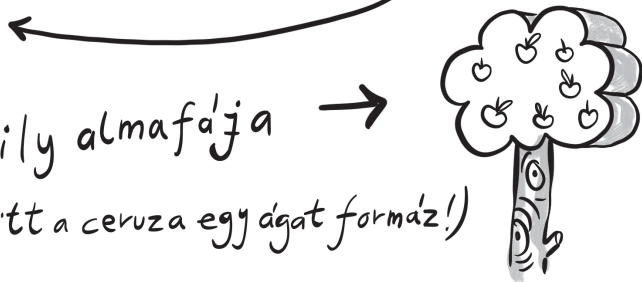 ily almafája
tt a ceruza egy ágat formáz!)